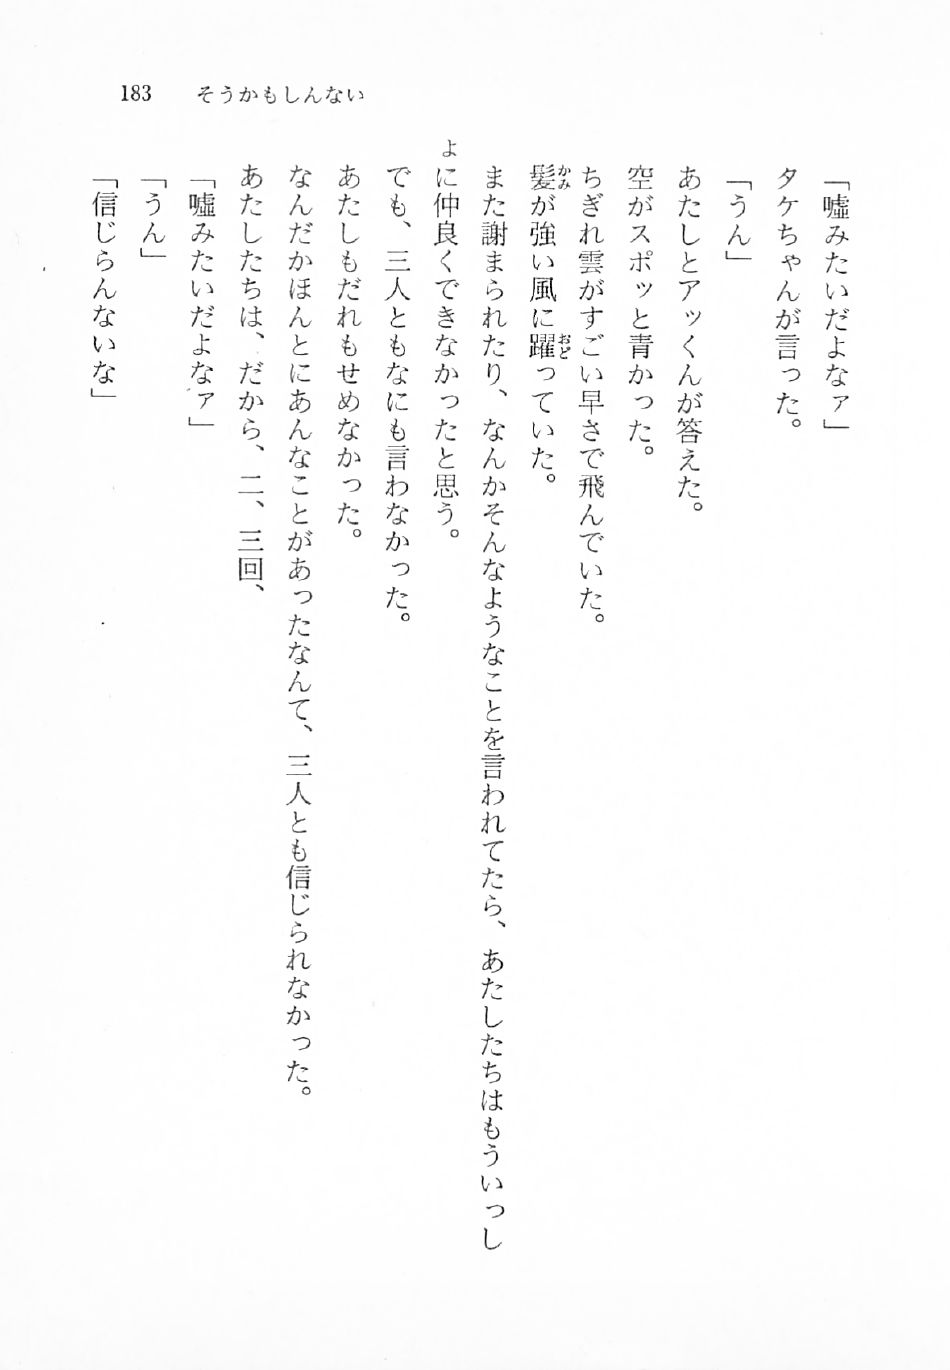 183 そうかもしんない
「嘘みたいだよなァ」
タケちゃんが言った。
「うん」
あたしとアッくんが答えた。
空がスポッと青かった。
ちぎれ雲がすごい早さで飛んでいた。
髪が強い風に躍っていた。
また謝まられたり、なんかそんなようなことを言われてたら、あたしたちはもういっし
ょに仲良くできなかったと思う。
でも、三人ともなにも言わなかった。
あたしもだれもせめなかった。
なんだかほんとにあんなことがあったなんて、三人とも信じられなかった。
あたしたちは、だから、二、三回、
「嘘みたいだよなァ」
「うん」
「信じらんないな」